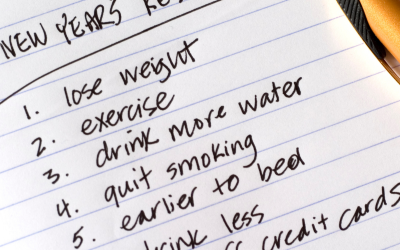 NEW YEARS
1. lose weight
2. exercise
3. drink more water
4. quit smoking
5. earlier to bed
drink less
credit cards